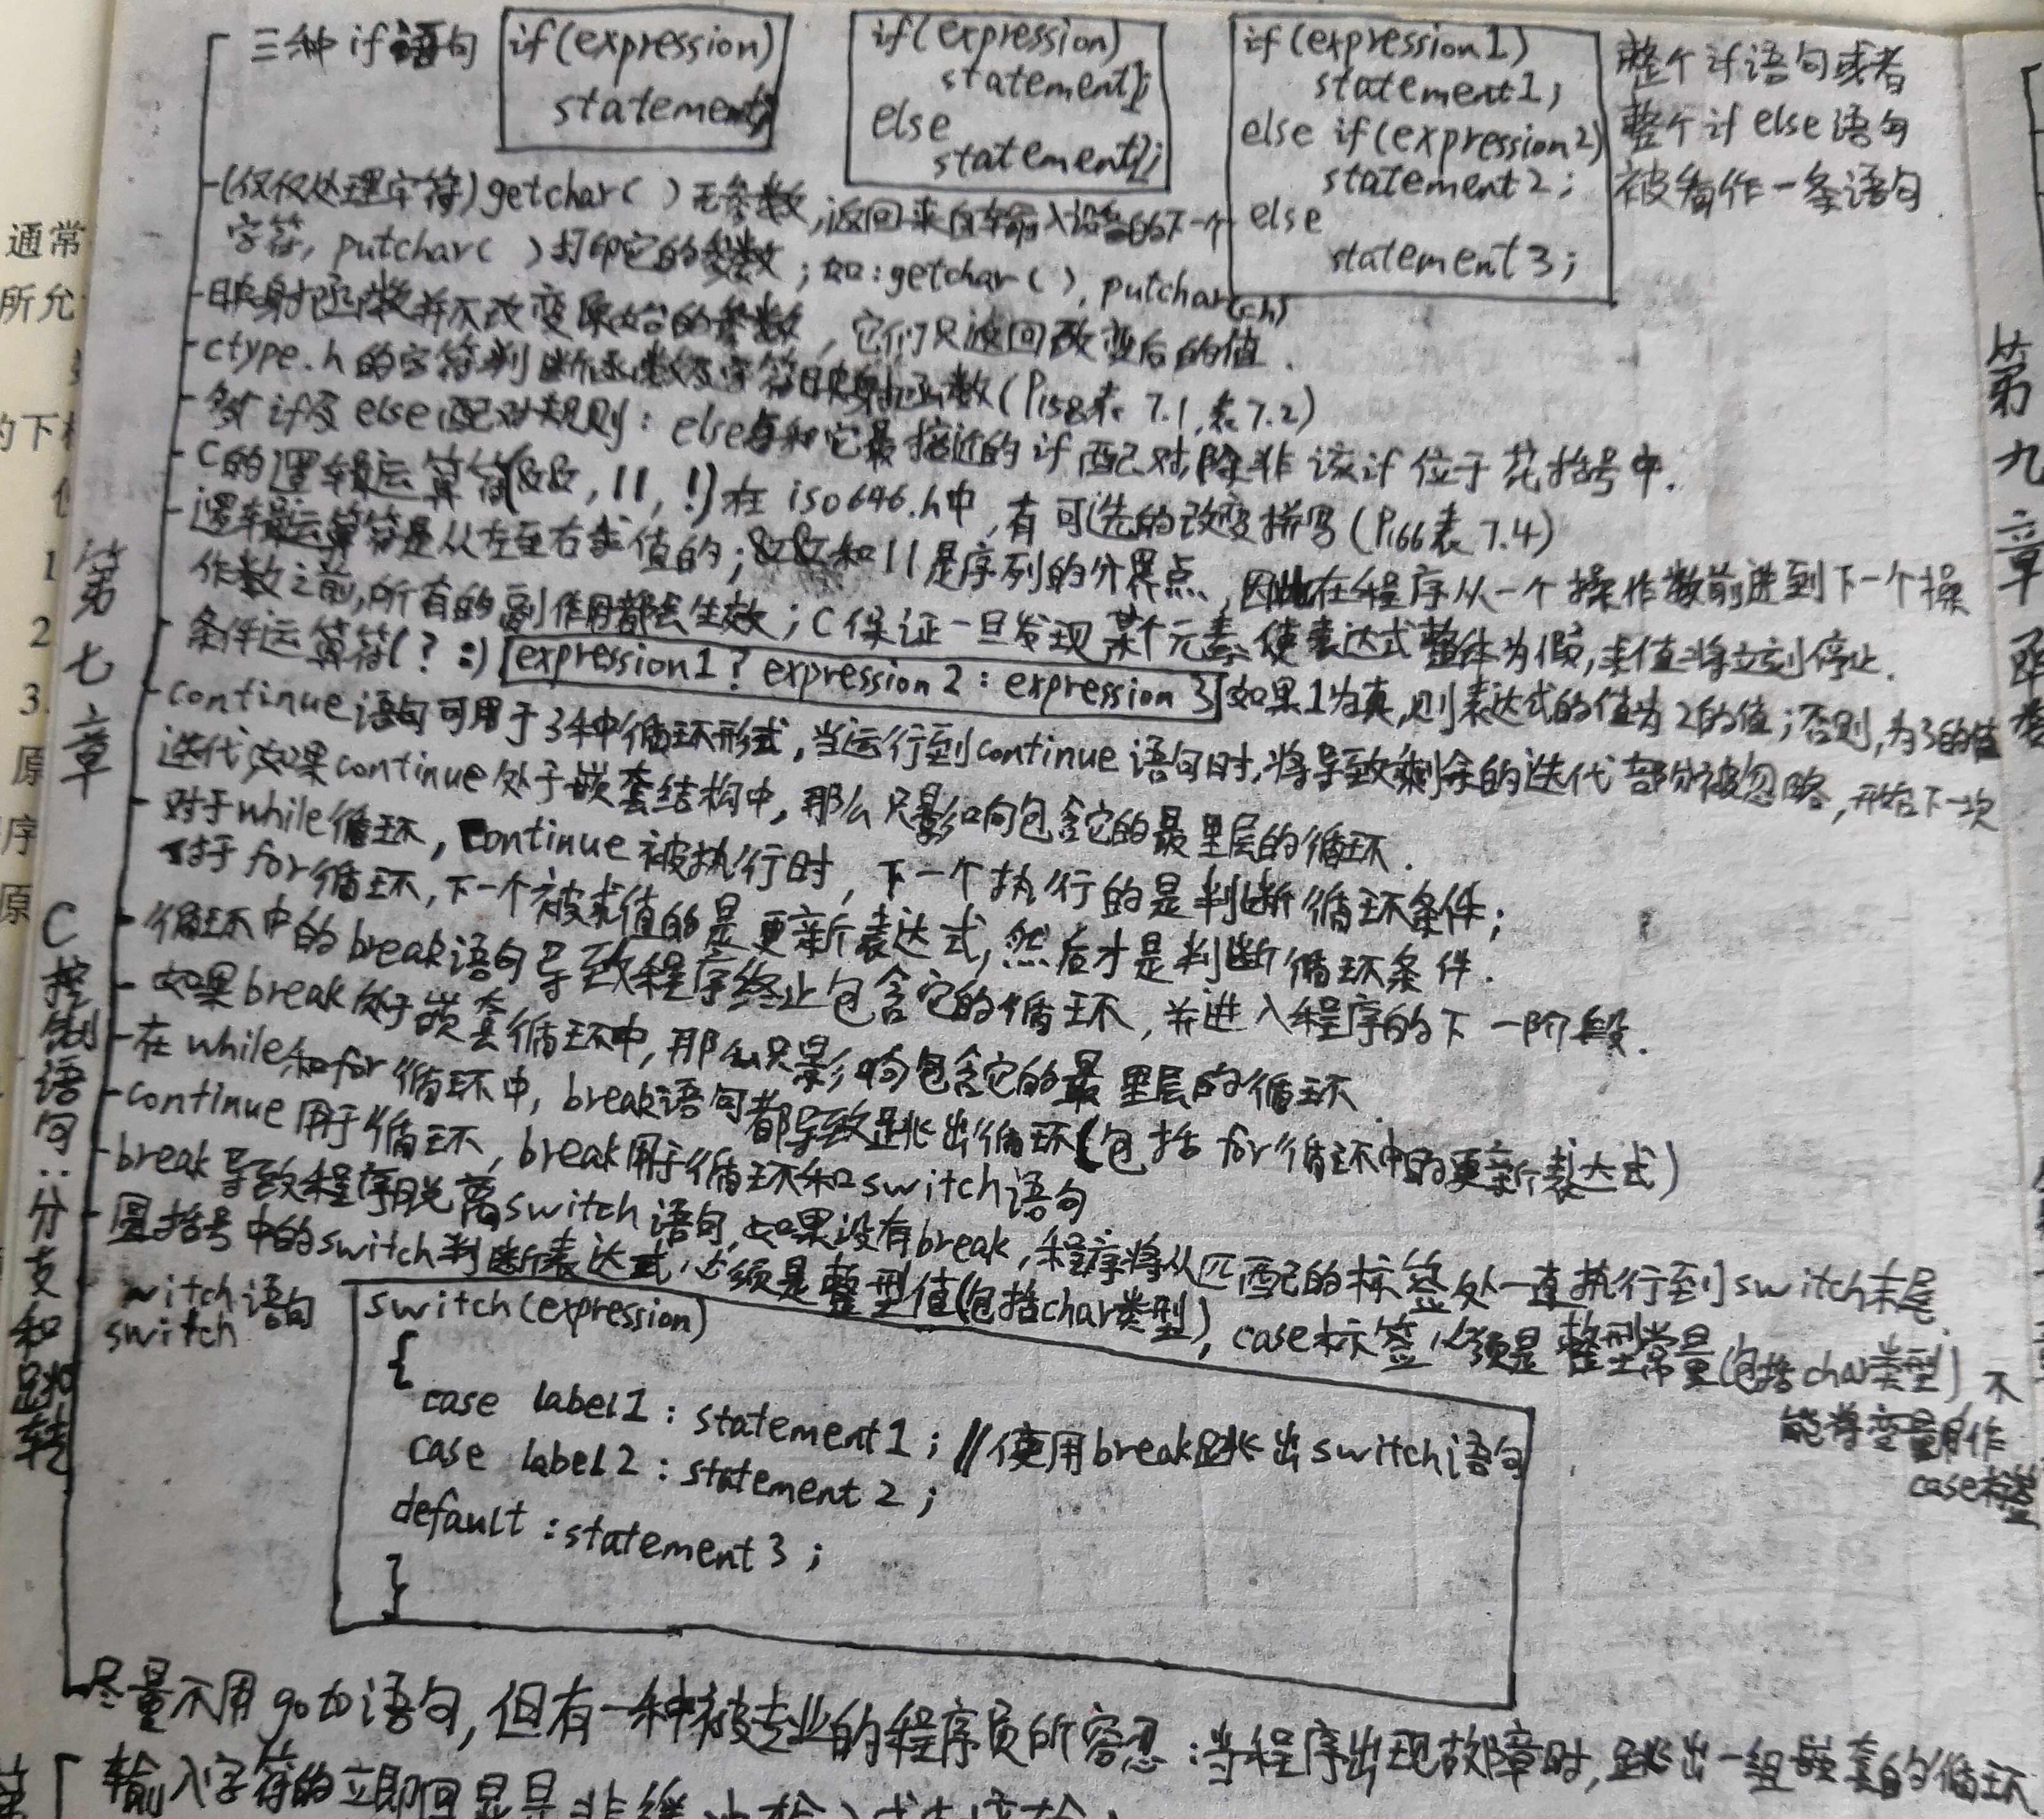 三种if语句
if(expression)
statement;
if(expression)
statement1;
else
statement2;
if(expression1)
statement1;
else if(expression2)
statement2;
else
statement3;
整个if语句或者
整个if else语句
被看作一条语句.
-(仅仅处理字符)getchar( )无参数,返回来自输入设备的下一个
字符, putchar( )打印它的参数;如:getchar( ), putchar(ch)
-映射函数并不改变原始的参数,它们只返回改变后的值.
-ctype.h的字符判断函数及字符映射函数(P158表7.1,表7.2)
-多if及else配对规则: else与和它最接近的if配对,除非该if位于花括号中.
-C的逻辑运算符(&&, ||, !)在iso646.h中,有可选的改变拼写(P166表7.4)
-逻辑运算符是从左至右求值的; &&和||是序列的分界点,因此在程序从一个操作数前进到下一个操
作数之前,所有的副作用都会生效; C保证一旦发现某个元素使表达式整体为假,求值将立刻停止.
-条件运算符(? :) expression1? expression2: expression3 如果1为真,则表达式的值为2的值;否则,为3的值
-continue语句可用于3种循环形式,当运行到continue语句时,将导致剩余的迭代部分被忽略,开始下一次
迭代,如果continue处于嵌套结构中,那么只影响包含它的最里层的循环.
-对于while循环, continue被执行时,下一个执行的是判断循环条件;
对于for循环,下一个被求值的是更新表达式,然后才是判断循环条件.
-循环中的break语句导致程序终止包含它的循环,并进入程序的下一阶段.
-如果break处于嵌套循环中,那么只影响包含它的最里层的循环.
-在while和for循环中, break语句都导致跳出循环(包括for循环中的更新表达式)
-continue用于循环, break用于循环和switch语句
-break导致程序脱离switch语句,如果没有break,程序将从匹配的标签处一直执行到switch末尾
-圆括号中的switch判断表达式必须是整型值(包括char类型), case标签必须是整型常量(包括char类型)不
能将变量用作
case标签
switch语句
switch
switch(expression)
{
case label1: statement1; //使用break跳出switch语句
case label2: statement2;
default: statement3;
}
尽量不用goto语句,但有一种被专业的程序员所容忍:当程序出现故障时,跳出一组嵌套的循环
第七章 C控制语句:分支和跳转
第九章
通常
所允
的下
1
2
3.
原
序
原
输入字符的立即回显是非缓冲输入